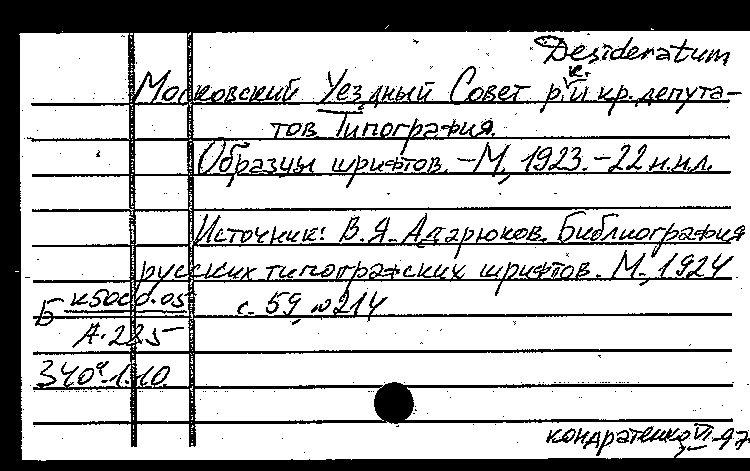 Desideratum
Московский Уездный Совет р. к. и кр. депута-
тов. Типография.
Образцы шрифтов. - М., 1923. - 22 н.н.л.
Источник: В.Я. Адарюков. Библиография
русских типографских шрифтов. М., 1924
с. 59, №214
Б
А.285
340
кондратенко VI-97